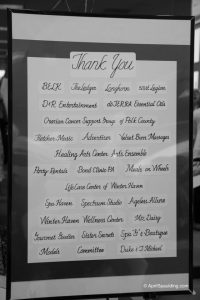 Thank You
BELK The Ledger Longhorn
D&R Entertainment doTERRA Essential Oils
Ovarian Cancer Support Group of Polk County
Fletcher Music Advertiser Velvet Bean Massages
Healing Arts Center Arts Ensemble
Henry Rentals Bond Clinic PA Music on Wheels
LifeCare Center of Winter Haven
Spa Haven Spectrum Studio Ageless Allure
Winter Haven Wellness Center Ms. Daisy
Gourmet Goodies Sister Secrets Spa B's Boutique
Models Committee Duke & J. Michael
© AprilSpaulding.com